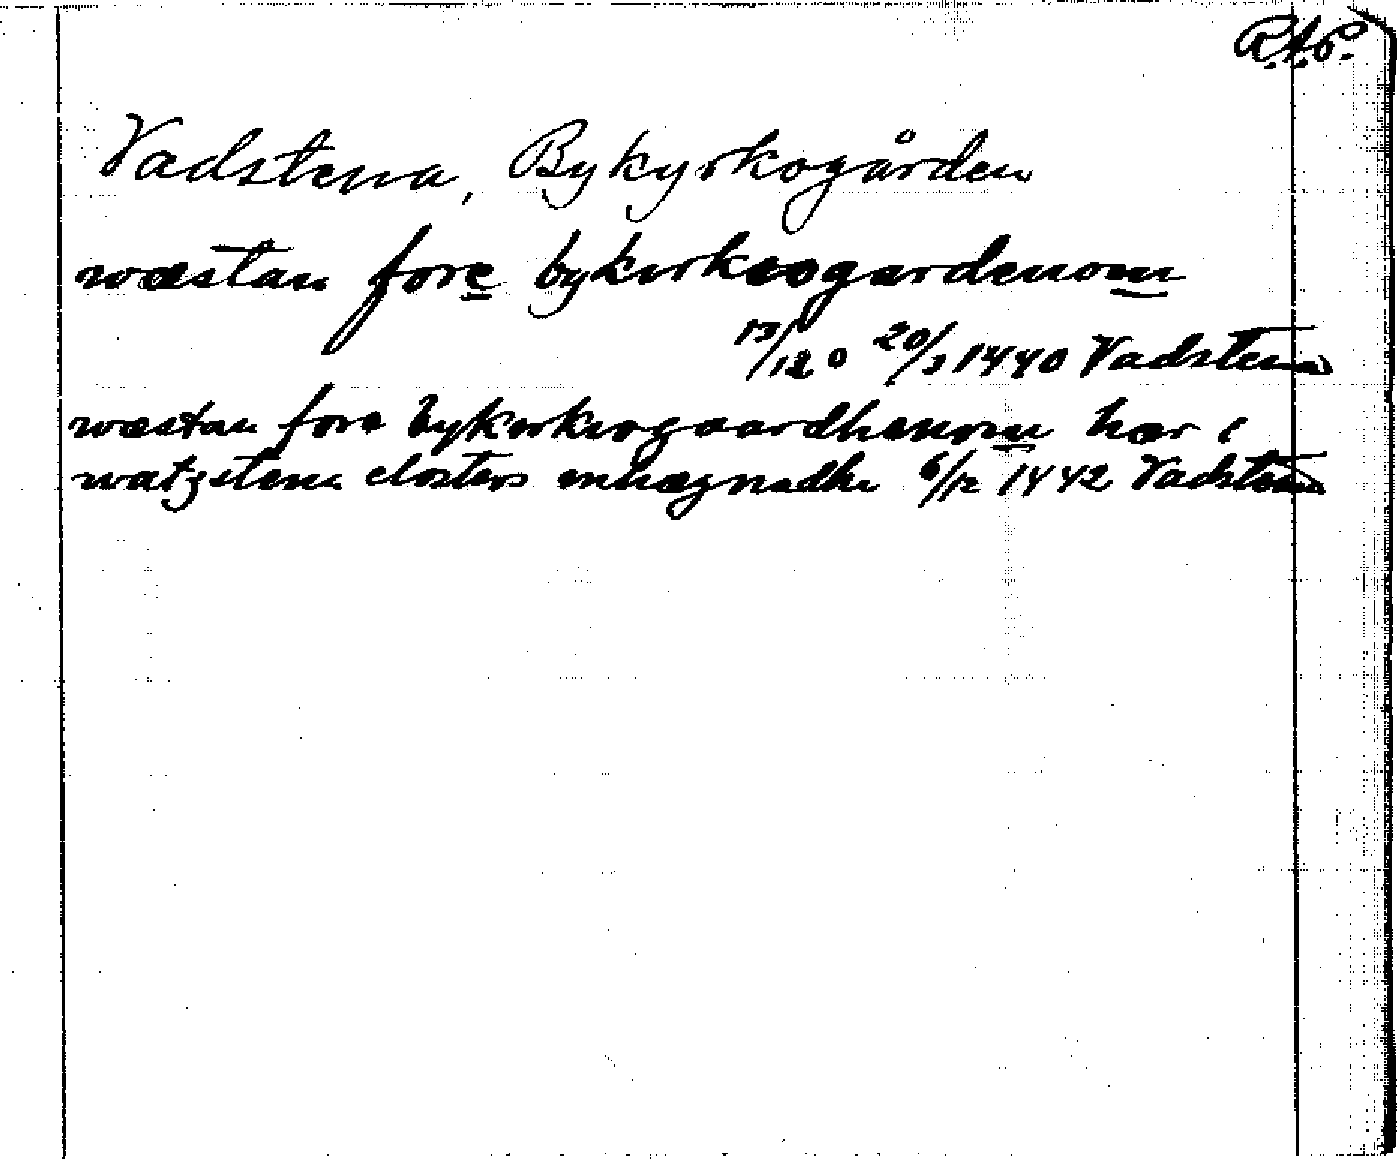 R.A.P.
Vadstena, Bykyrkogården
wæstan fore bykirkeogardenom
13/12 o 20/3 1440 Vadstena
wæstan fore bykirkiogaardhenom hær i
watzstena closters enhægnadhe 6/12 1442 Vadstena